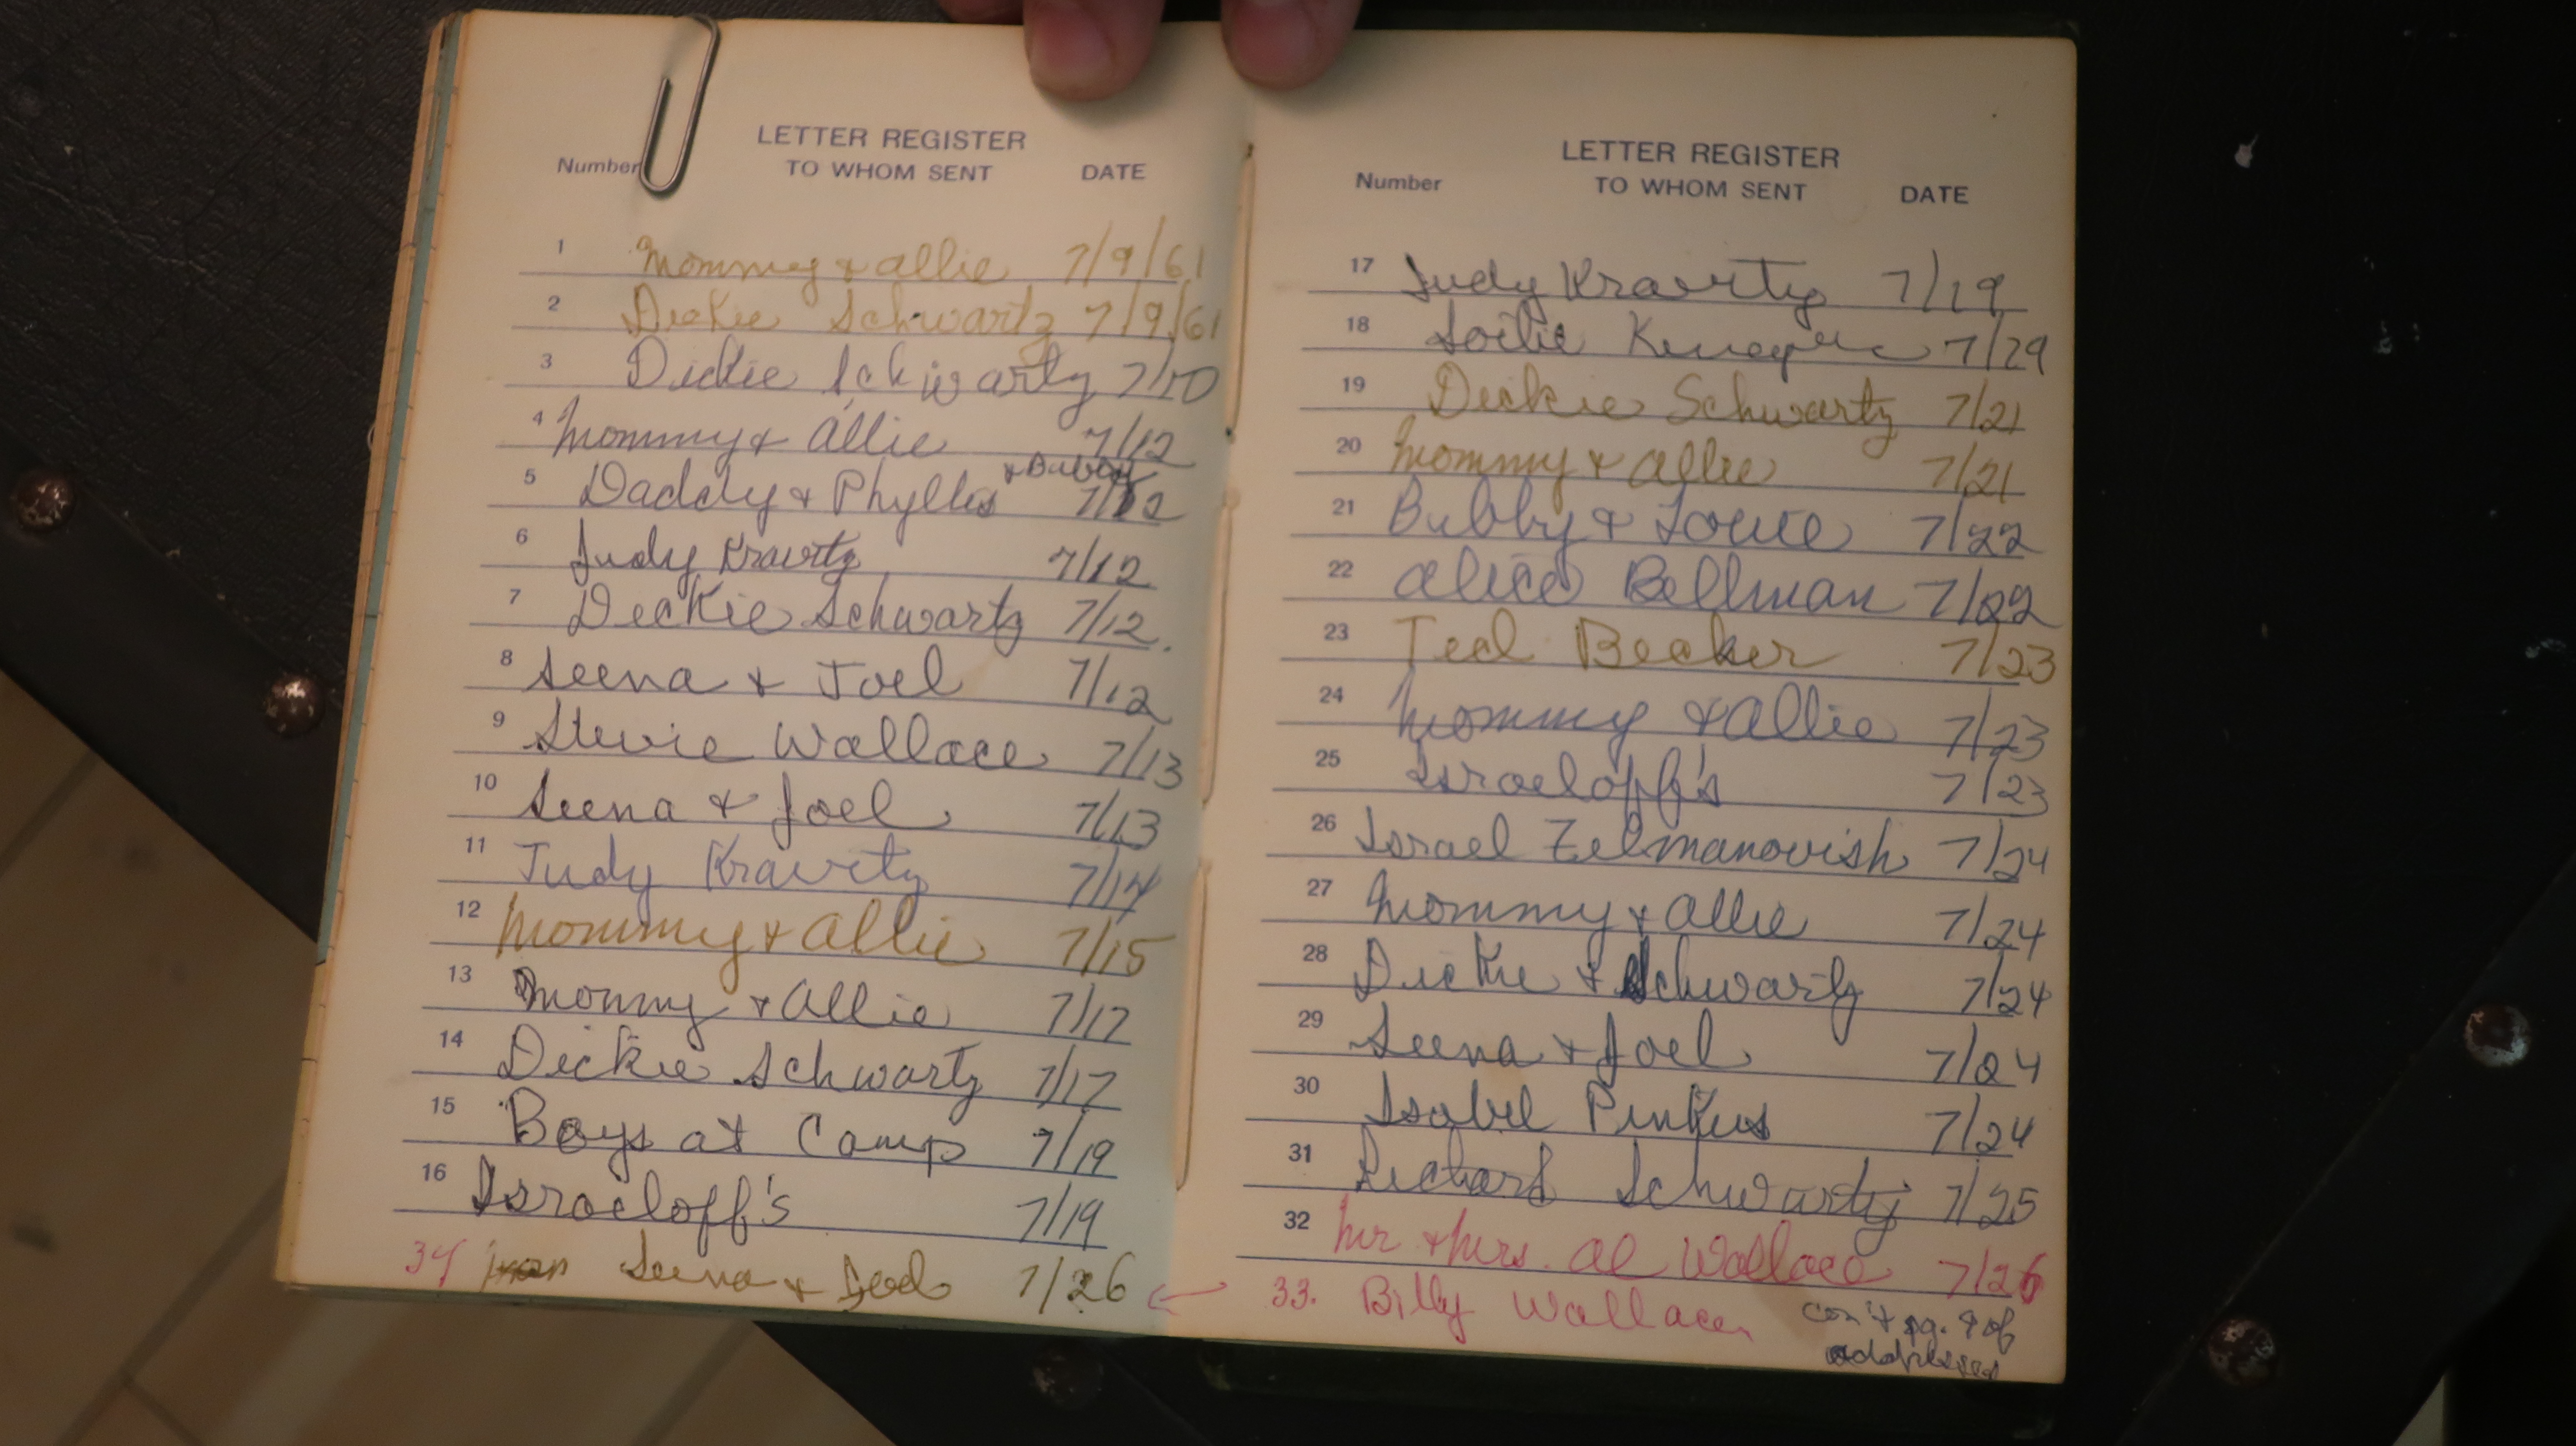 LETTER REGISTER
Number TO WHOM SENT DATE
1 Mommy & Allie 7/9/61
2 Dickie Schwartz 7/9/61
3 Dickie Schwartz 7/10
4 Mommy & Allie 7/12
5 Daddy & Phyllis & Bubby 7/12
6 Judy Kravitz 7/12
7 Dickie Schwartz 7/12.
8 Seena & Joel 7/12
9 Stevie Wallace 7/13
10 Seena & Joel 7/13
11 Judy Kravitz 7/14
12 Mommy & Allie 7/15
13 Mommy & Allie 7/17
14 Dickie Schwartz 7/17
15 Boys at Camp 7/19
16 Israeloff's 7/19
34 Seena & Joel 7/26
LETTER REGISTER
Number TO WHOM SENT DATE
17 Judy Kravitz 7/19
18 7/29
19 Dickie Schwartz 7/21
20 Mommy & Allie 7/21
21 Bubby & Louie 7/22
22 Alice Bellman 7/22
23 Ted Becker 7/23
24 Mommy & Allie 7/23
25 Israeloff's 7/23
26 Israel Zelmanovish 7/24
27 Mommy & Allie 7/24
28 Dickie & Schwartz 7/24
29 Seena & Joel 7/24
30 Isobel Pinkus 7/24
31 Richard Schwartz 7/25
32 Mr & Mrs. Al Wallace 7/26
33. Billy Wallace
con't pg. 9 of
addresses